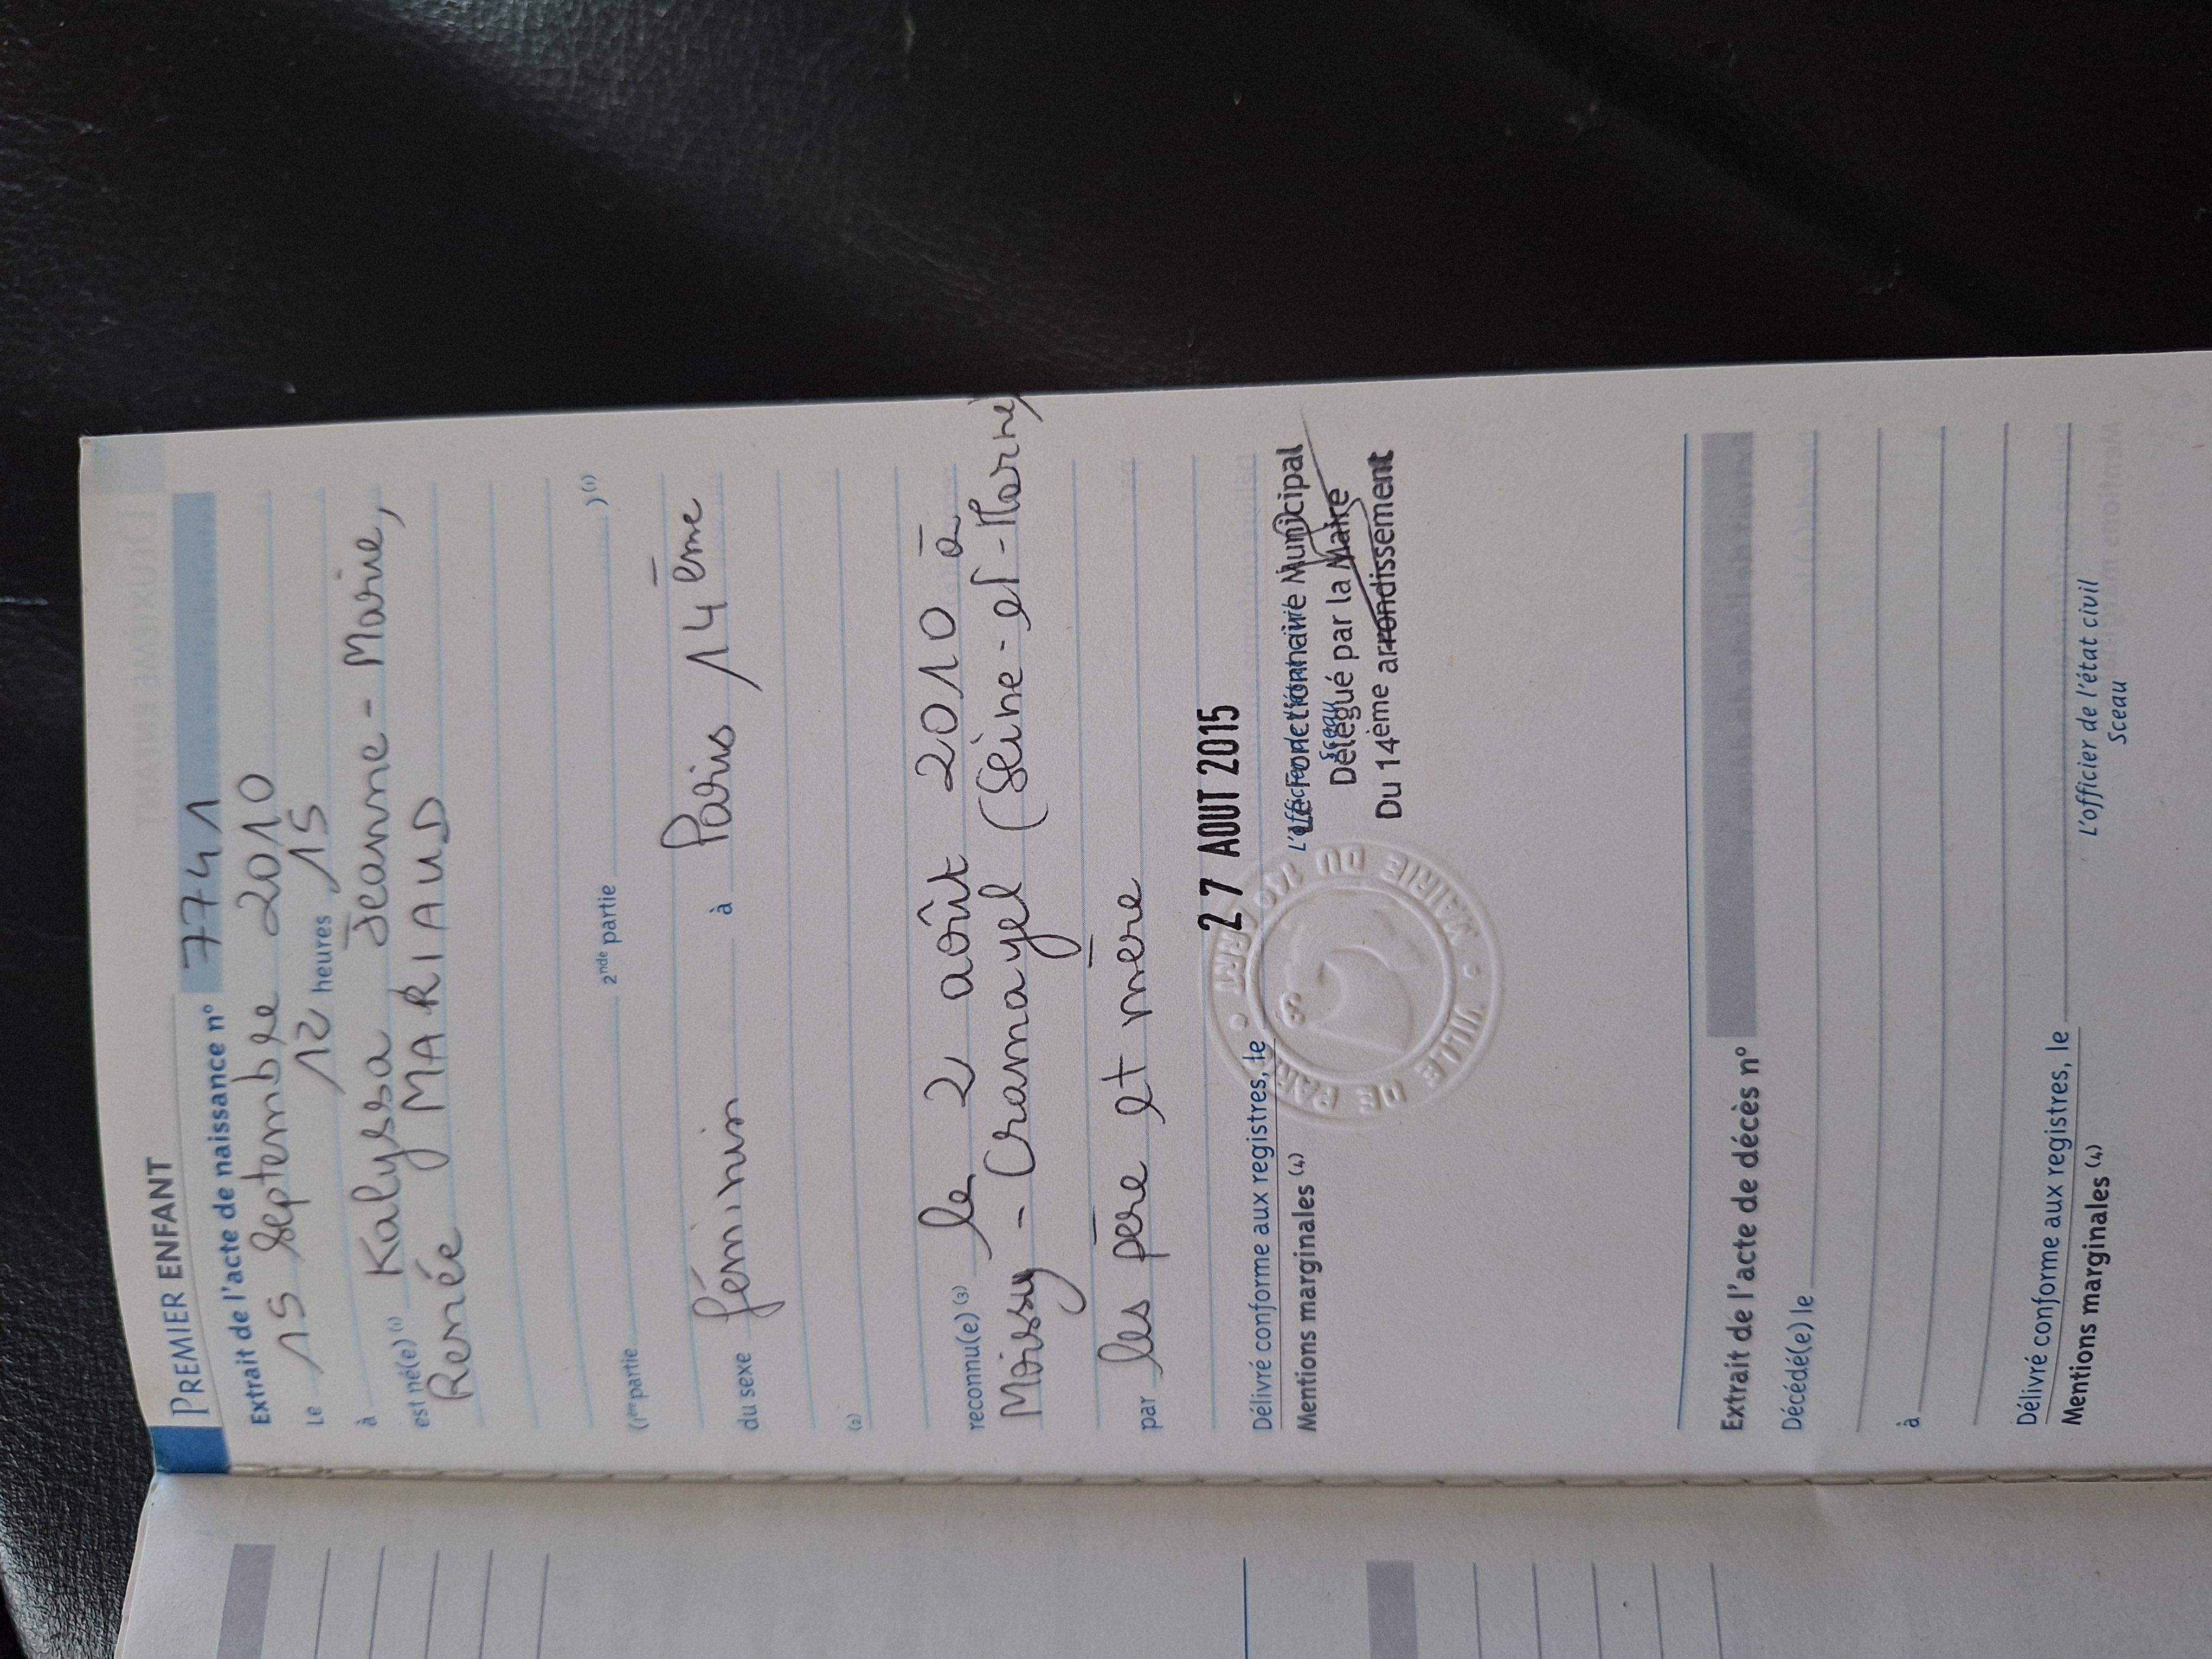 PREMIER ENFANT
Extrait de l'acte de naissance n° 7741
Le 15 septembre 2010
à 12 heures 15
est né(e) (1) Kalyssa Jeanne-Marie,
Renée MARIAUD
(1ère partie 2nde partie )(1)
du sexe féminin à Paris 14ème
(2)
reconnu(e) (3) le 2 août 2010 à
Moissy-Cramayel (Seine-et-Marne)
par les père et mère
Délivré conforme aux registres, le 27 AOUT 2015
Mentions marginales (4)
L'officier de l'état civil
Sceau
Le Fonctionnaire Municipal
Délégué par la Maire
Du 14ème arrondissement
VILLE DE PARIS • MAIRIE DU 14e ARRT •
Extrait de l'acte de décès n°
Décédé(e) le
à
Délivré conforme aux registres, le
Mentions marginales (4)
L'officier de l'état civil
Sceau
DEUXIÈME ENFANT